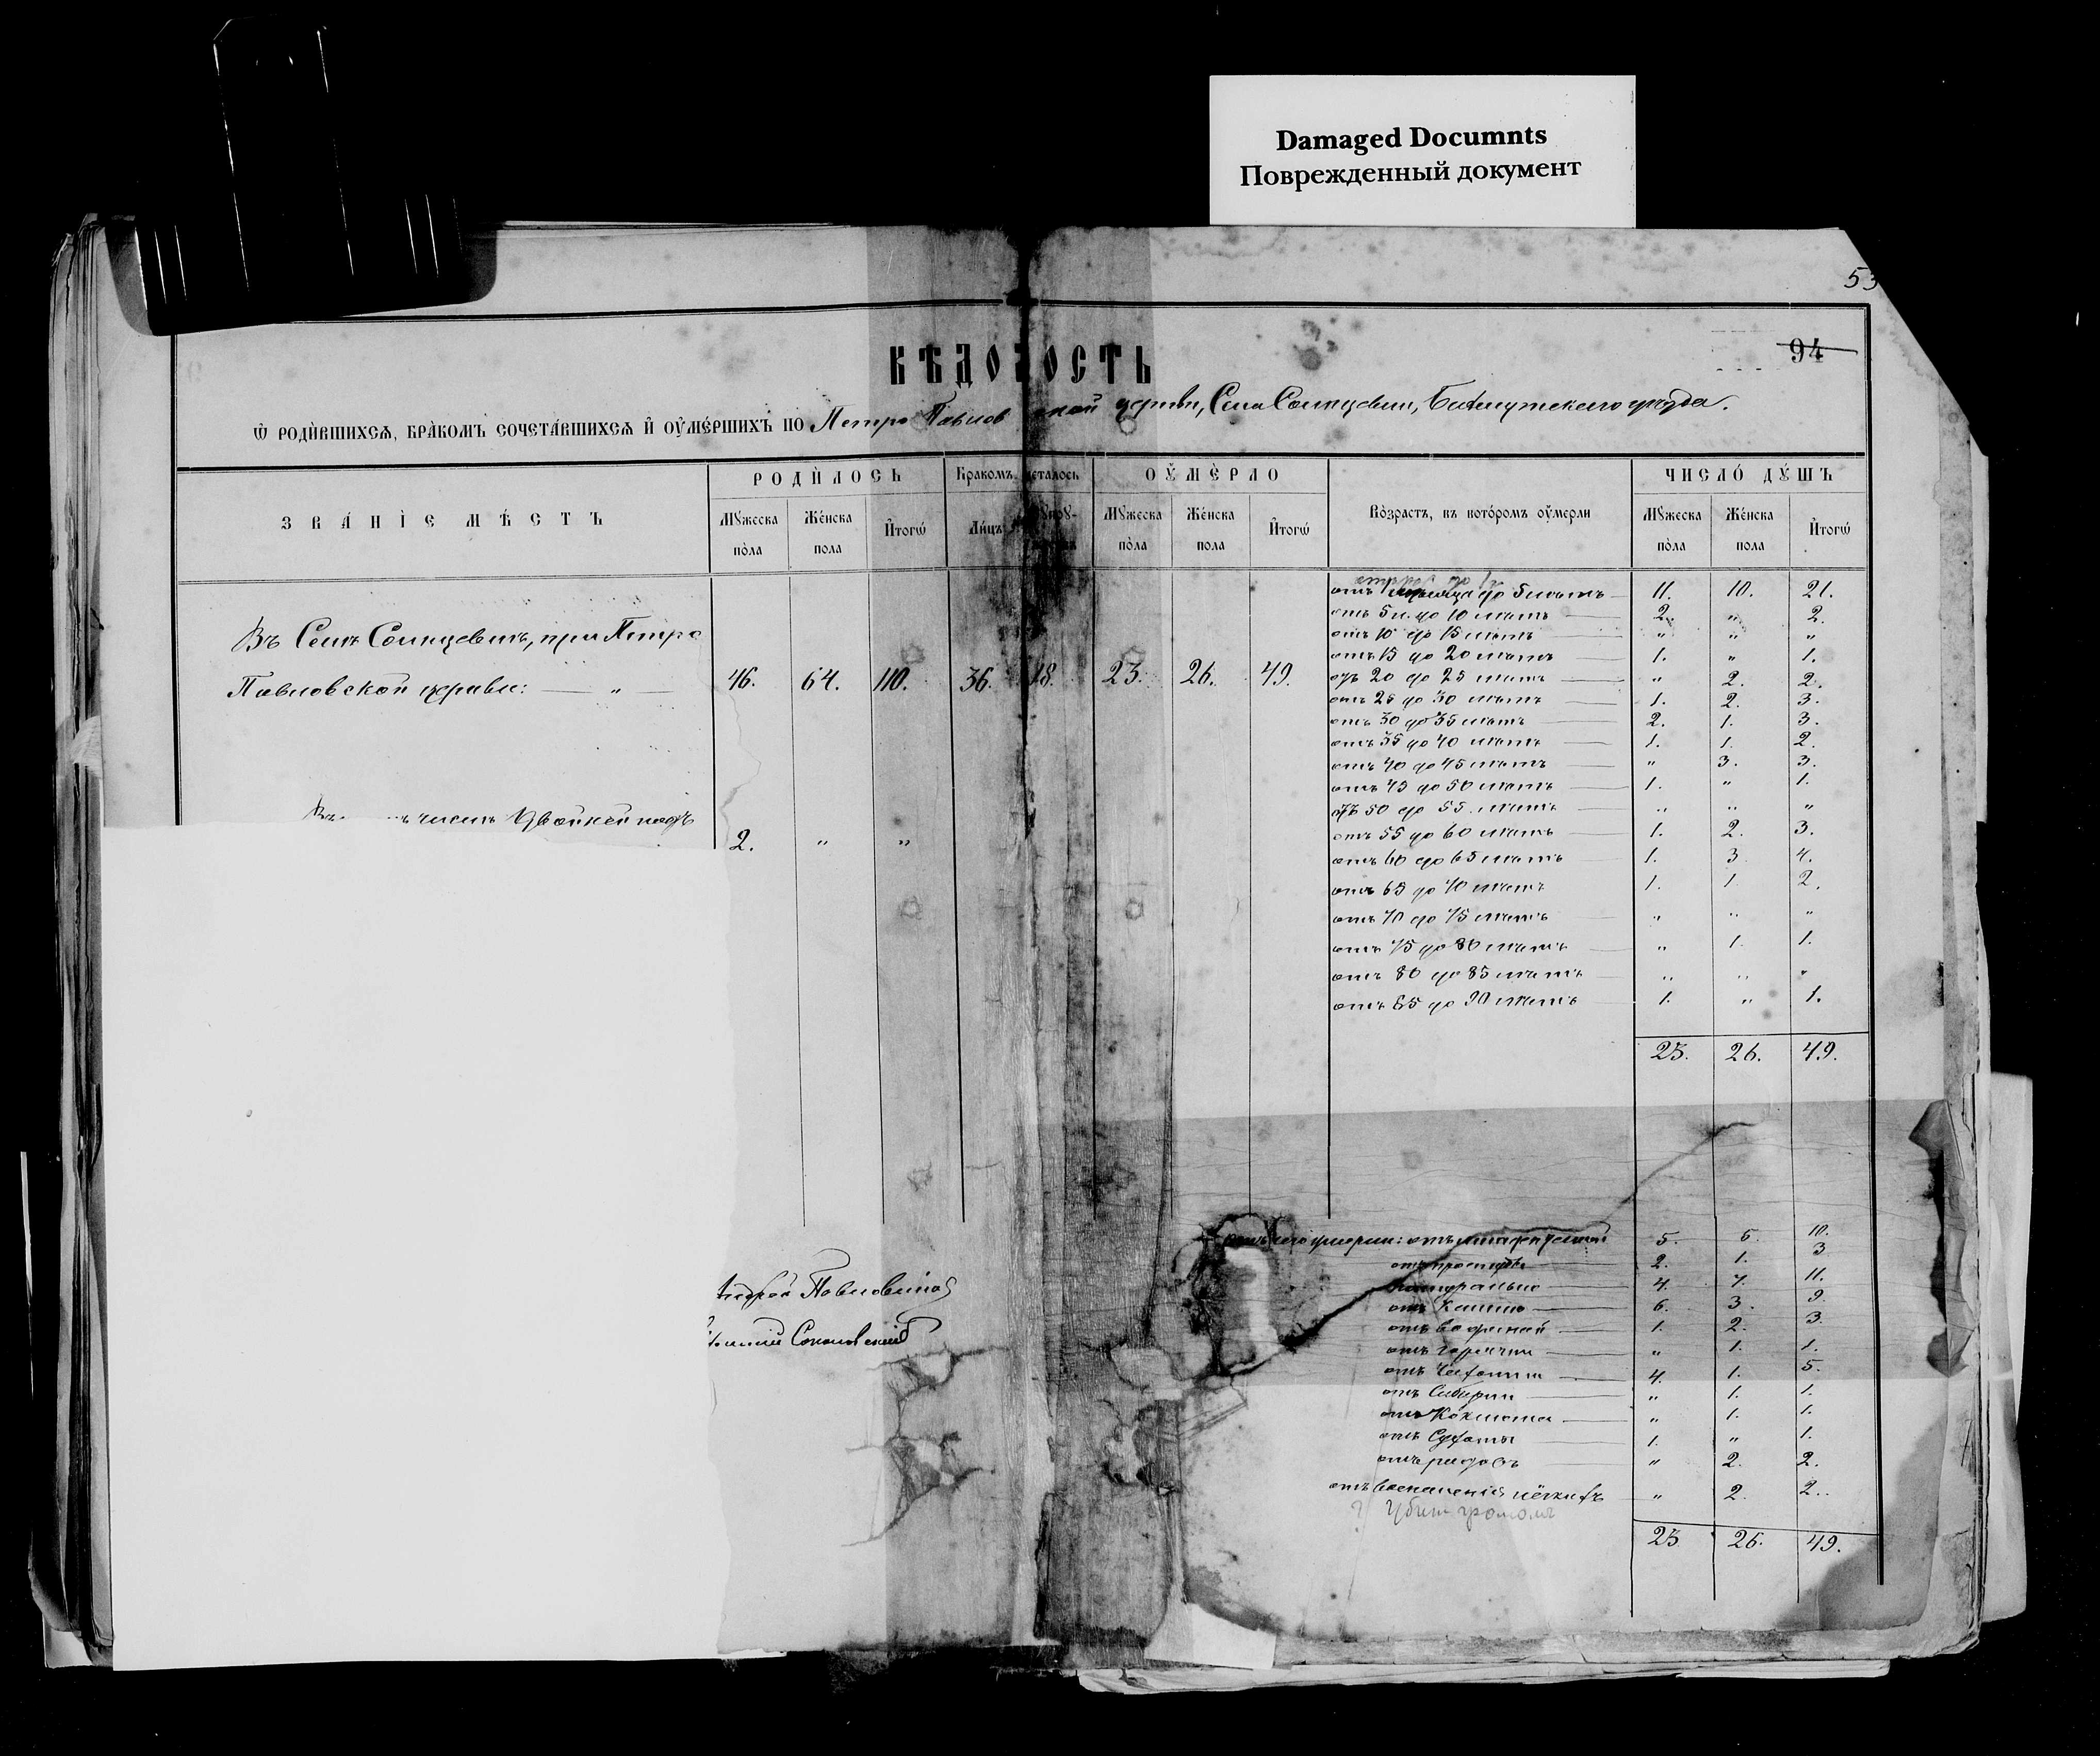 Damaged Documnts
Поврежденный документ
53
94
ВѢДОМОСТЬ
Ѡ РОДИВШИХСѦ, БРАКОМЪ СОЧЕТАВШИХСѦ И ОУМЕРШИХЪ ПО Петро Павловской церкви, Села Солнцевки, Бахмутскаго уѣзда.
ЗВАНІЕ МѢСТЪ
РОДИЛОСЬ
Мꙋжеска пола
Женска пола
Итогѡ
Бракомъ
Лицъ
ОУМЕРЛО
Мꙋжеска пола
Женска пола
Итогѡ
Возрастъ, въ которомъ оумерли
ЧИСЛО ДУШЪ
Мꙋжеска пола
Женска пола
Итогѡ
Въ Селѣ Солнцевкѣ, при Петро
Павловской церкви: — „ — 46. 64. 110. 36. 18. 23. 26. 49.
2. „ „
до 5 лѣтъ — 11. 10. 21.
отъ 5 л. до 10 лѣтъ — 2. „ 2.
отъ 10 до 15 лѣтъ — „ „ „
отъ 15 до 20 лѣтъ — 1. „ 1.
отъ 20 до 25 лѣтъ — „ 2. 2.
отъ 25 до 30 лѣтъ — 1. 2. 3.
отъ 30 до 35 лѣтъ — 2. 1. 3.
отъ 35 до 40 лѣтъ — 1. 1. 2.
отъ 40 до 45 лѣтъ — „ 3. 3.
отъ 45 до 50 лѣтъ — 1. „ 1.
отъ 50 до 55 лѣтъ — „ „ „
отъ 55 до 60 лѣтъ — 1. 2. 3.
отъ 60 до 65 лѣтъ — 1. 3 4.
отъ 65 до 70 лѣтъ — 1. 1 2.
отъ 70 до 75 лѣтъ — „ „ „
отъ 75 до 80 лѣтъ — „ 1. 1.
отъ 80 до 85 лѣтъ — „ „ „
отъ 85 до 90 лѣтъ — 1. „ 1.
23. 26. 49.
Соколовскій
умерли: отъ 5. 5. 10.
отъ простуды — 2. 1. 3
натурально — 4. 7. 11.
отъ кашлю — 6. 3. 9.
отъ водяной — 1. 2. 3.
отъ горячки — „ 1. 1.
отъ чахотки — 4. 1. 5.
отъ — „ 1. 1.
отъ коклюша — „ 1. 1.
отъ сухоты — 1. „ 1.
отъ родовъ — „ 2. 2.
отъ воспаленія лёгкихъ — „ 2. 2.
? Убит громомъ
23 26. 49.